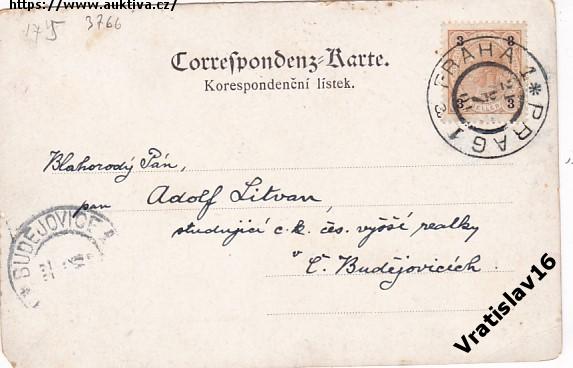 https://www.auktiva.cz/
175 3766
Correspondenz-Karte.
Korespondenční lístek.
3 3
3 3
PRAHA 1 * PRAG 1
Blahorodý Pán,
pan Adolf Litvan,
studující c. k. čes. vyšší realky
v Č. Budějovicích.
BUDĚJOVICE
Vratislav16